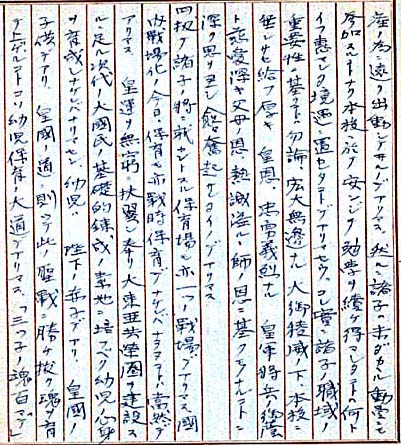 産ノ為ニ遠ク出動シテヰルノデアリマス。然ルニ諸子ハ未ダカヽル動員モ
参加スルコトナク本校ニ於テ安ンジテ勉学ヲ続ケ得マシタコトハ何ト
イフ恵マレタ境遇ニ置カセラレタコトデアリマセウ。コレ實ニ諸子ノ職域ノ
重要性ニ基クコト勿論、宏大無邊ナル大御稜威ノ下、本校ニ
セ給フ厚キ皇恩、忠勇義烈ナル皇軍将兵
ト慈愛深キ父母ノ恩、熱誠溢ルヽ師ノ恩ニ基クモノナルコトニ
深ク思ヲ至シ奮起サレタイノデアリマス
諸子ノ将ニ就カントスル保育場モ亦一ツノ戦場デアリマス。國
内戦場化ノ今日、保育モ亦戦時保育デナケレバナリマセヌ。
アリマス。皇運ヲ無窮ニ扶翼シ奉リ大東亜共榮圏ヲ建設ス
ルニ足ル次代ノ大國民ノ基礎的錬成ノ素地ニ培フベク幼児ノ心身
ヲ育成シナケレバナリマセン。幼児ハ陛下ノ赤子デアリ、皇國ノ
子供デアリ、皇國ノ道ニ則ッテ此ノ聖戦ニ勝チ抜ク魂ヲ育
テ上ゲルコトコソ幼児保育ノ大道デアリマス。「三ツ子ノ魂百マデ」